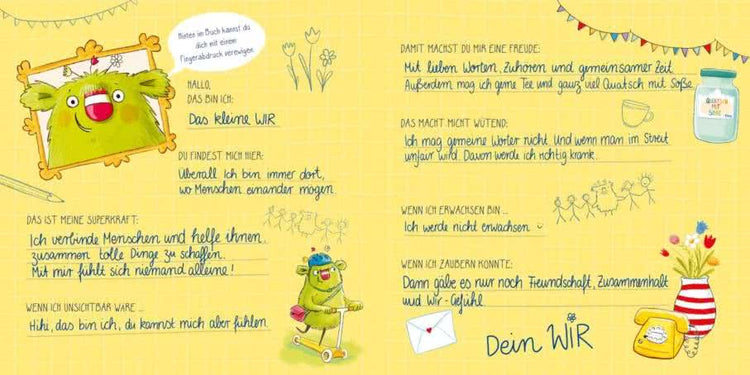 Hinten im Buch kannst du
dich mit einem
Fingerabdruck verewigen.
HALLO,
DAS BIN ICH:
Das kleine WIR
DU FINDEST MICH HIER:
Überall. Ich bin immer dort,
wo Menschen einander mögen.
DAS IST MEINE SUPERKRAFT:
Ich verbinde Menschen und helfe ihnen,
zusammen tolle Dinge zu schaffen.
Mit mir fühlt sich niemand alleine!
WENN ICH UNSICHTBAR WÄRE ...
Hihi, das bin ich, du kannst mich aber fühlen
DAMIT MACHST DU MIR EINE FREUDE:
Mit lieben Worten, Zuhören und gemeinsamer Zeit.
Außerdem mag ich gerne Tee und ganz viel Quatsch mit Soße.
QUATSCH
MIT
SOSSE
DAS MACHT MICH WÜTEND:
Ich mag gemeine Wörter nicht. Und wenn man im Streit
unfair wird. Davon werde ich richtig krank.
WENN ICH ERWACHSEN BIN ...
Ich werde nicht erwachsen
WENN ICH ZAUBERN KÖNNTE:
Dann gäbe es nur noch Freundschaft, Zusammenhalt
und Wir-Gefühl
Dein WIR